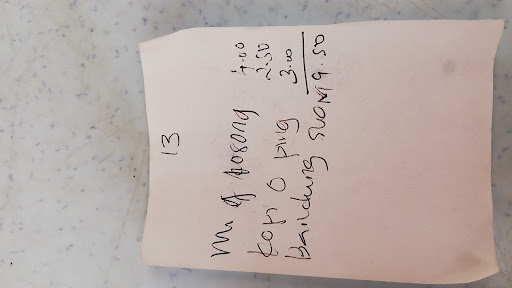 13
Mi g kosong 4.00
Kopi O ping 2.50
Bandung 3.00
9.50